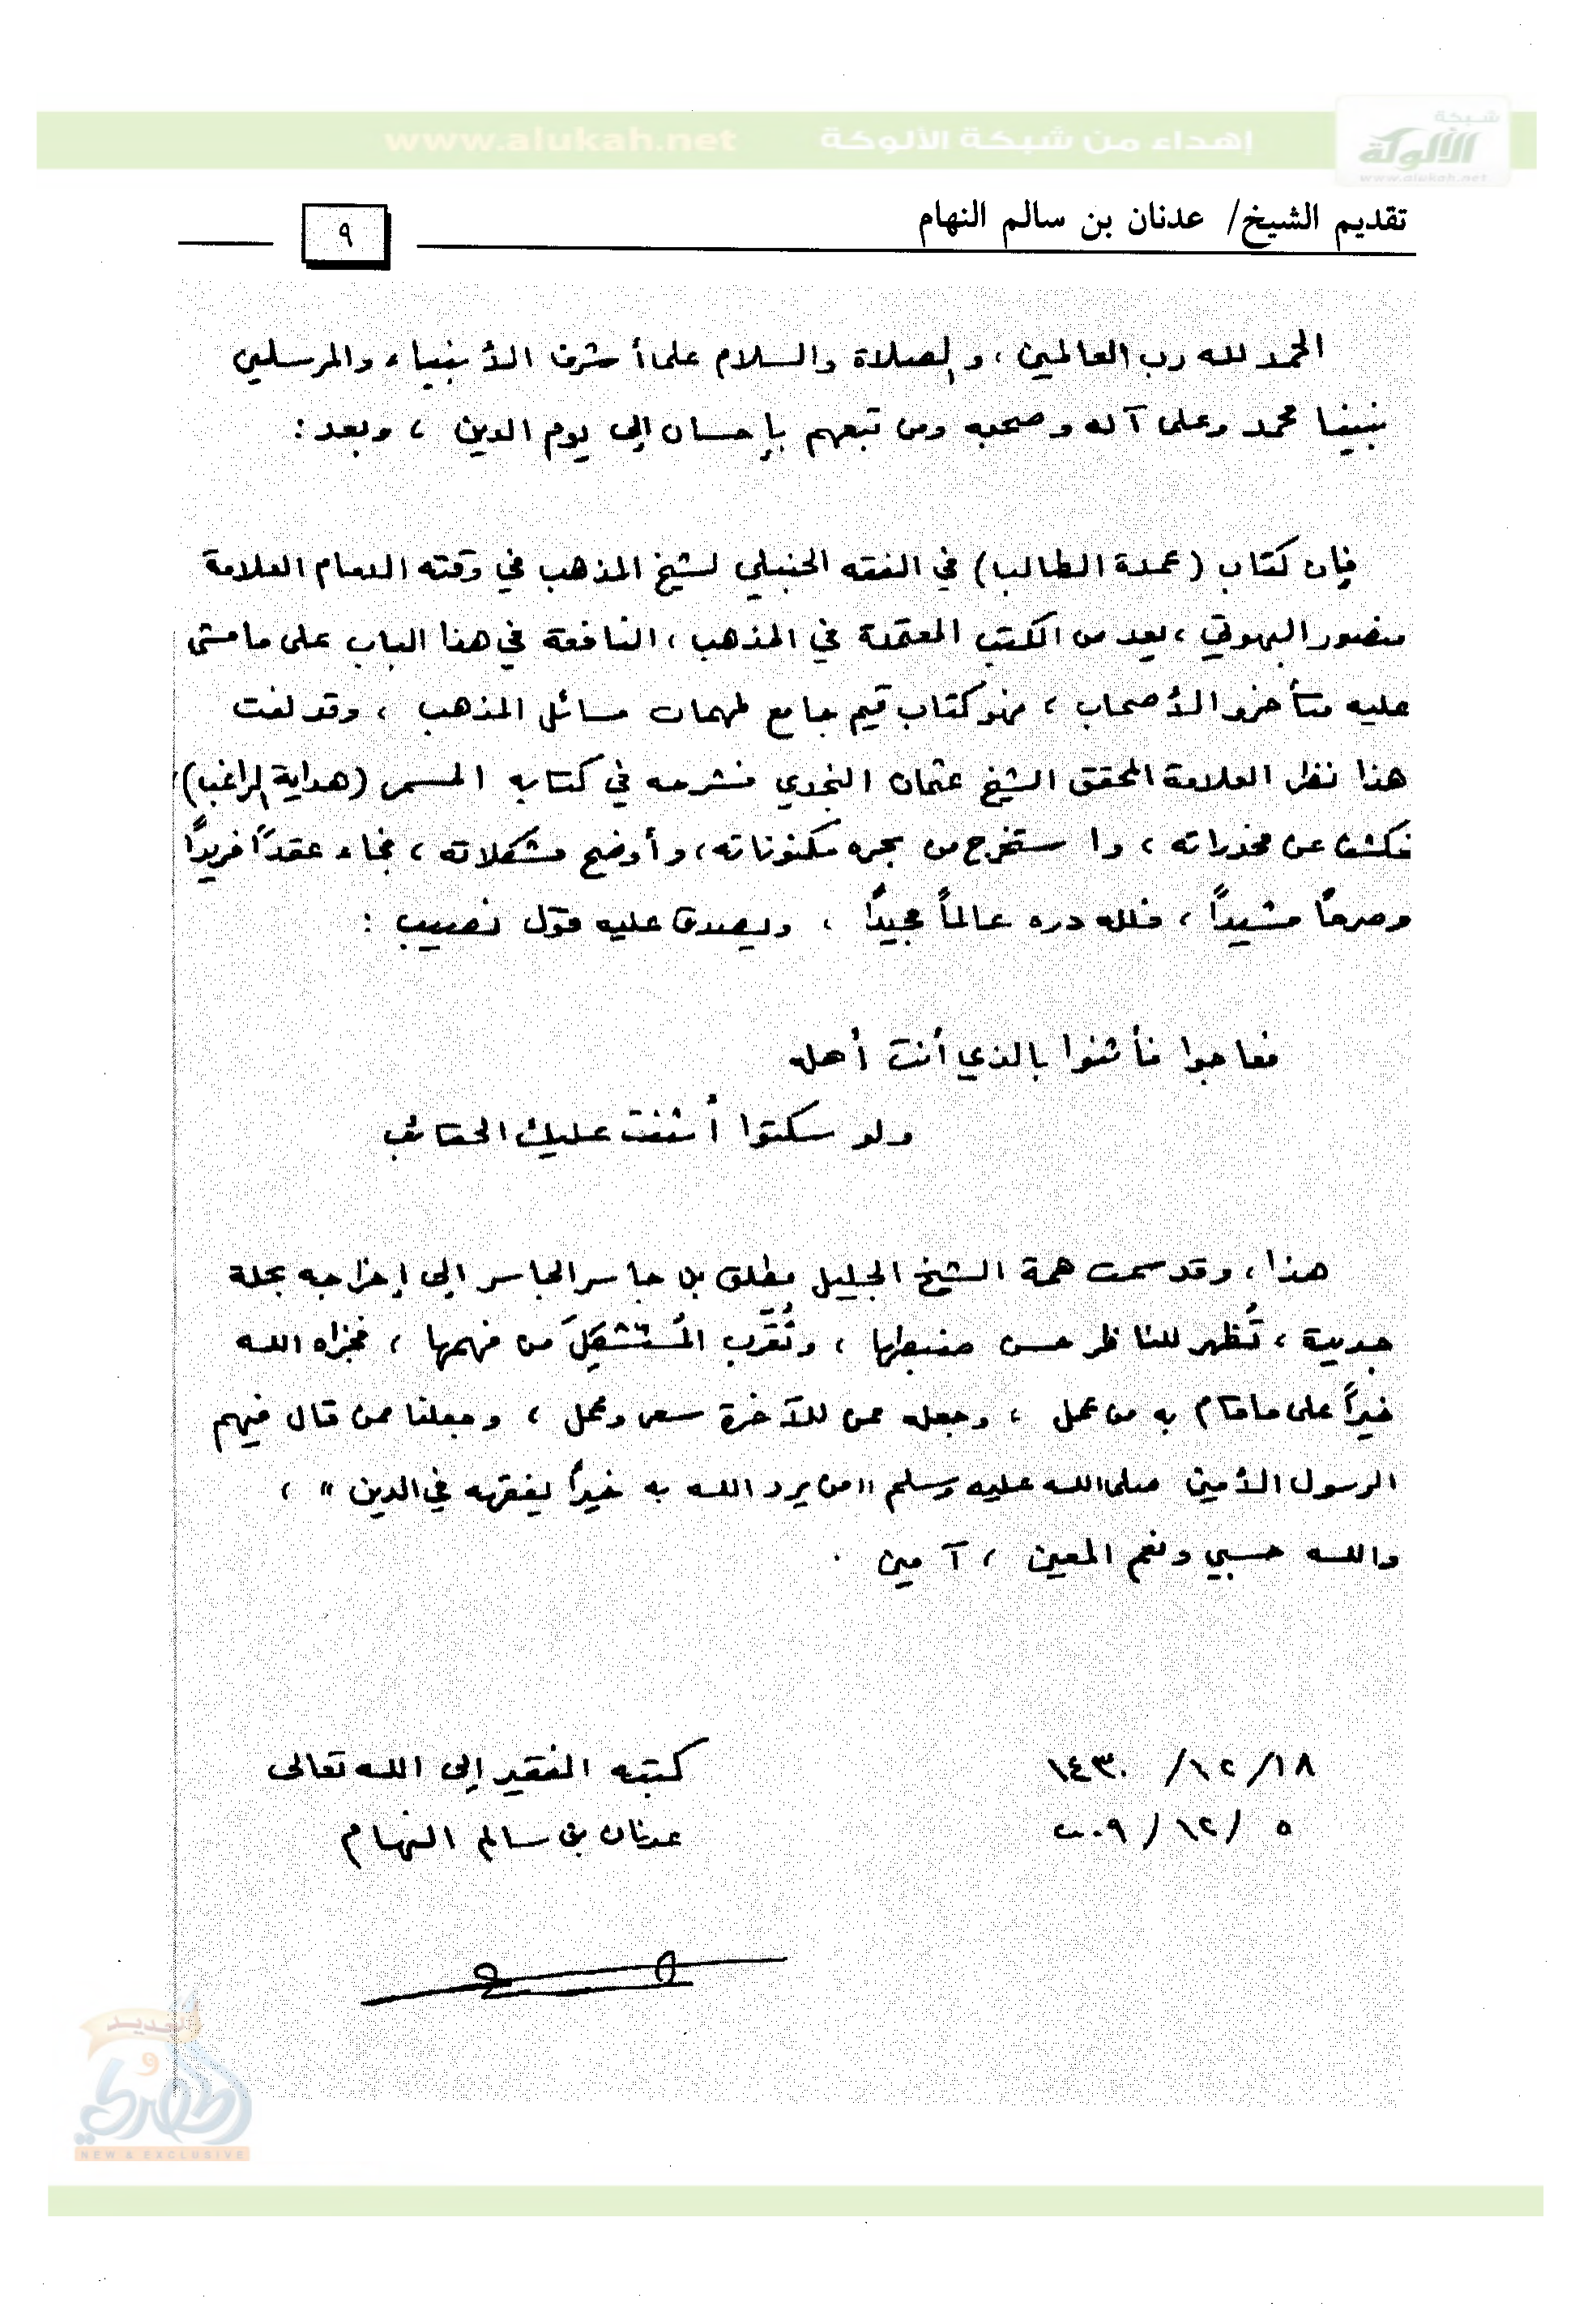 شبكة
الألوكة
www.alukah.net
إهداء من شبكة الألوكة www.alukah.net
تقديم الشيخ/ عدنان بن سالم النهام
٩
الحمد لله رب العالمين ، والصلاة والسلام على أشرف الأنبياء والمرسلين
نبينا محمد وعلى آله وصحبه ومن تبعهم بإحسان إلى يوم الدين ، وبعد :
فإن كتاب (عمدة الطالب) في الفقه الحنبلي لشيخ المذهب في وقته الإمام العلامة
منصور البهوتي ، يعد من الكتب المعتمدة في المذهب ، النافعة في هذا الباب على ما مشى
عليه متأخرو الأصحاب ، فهو كتاب قيم جامع لمهمات مسائل المذهب ، وقد لفت
هذا نظر العلامة المحقق الشيخ عثمان النجدي فشرحه في كتابه المسمى (هداية الراغب) ؛
فكشف عن مخدراته ، واستخرج من بحره مكنوناته ، وأوضح مشكلاته ، فجاء عقداً فريداً
وصرحاً مشيداً ، فلله دره عالماً مجيداً ، ويصدق عليه قول نصيب :
فعاجوا فأثنوا بالذي أنت أهله
ولو سكتوا أثنت عليك الحقائب
هذا ، وقد سمت همة الشيخ الجليل مطلق بن جاسر الجاسر إلى إخراجه بحلة
جديدة ، تُظهر للناظر حسن ضبطها ، وتُقَرِّب المُستشكِلَ من فهمها ، فجزاه الله
خيراً على ما قام به من عمل ، وجعله ممن للآخرة سعى وعمل ، وجعلنا ممن قال فيهم
الرسول الأمين صلى الله عليه وسلم "من يرد الله به خيراً يفقهه في الدين" ،
والله حسبي ونعم المعين ، آمين .
١٨/ ١٢/ ١٤٣٠ كتبه الفقير إلى الله تعالى
٥ / ١٢/ ٢٠٠٩ عدنان بن سالم النهام
الجديد
و
الحصري
NEW & EXCLUSIVE